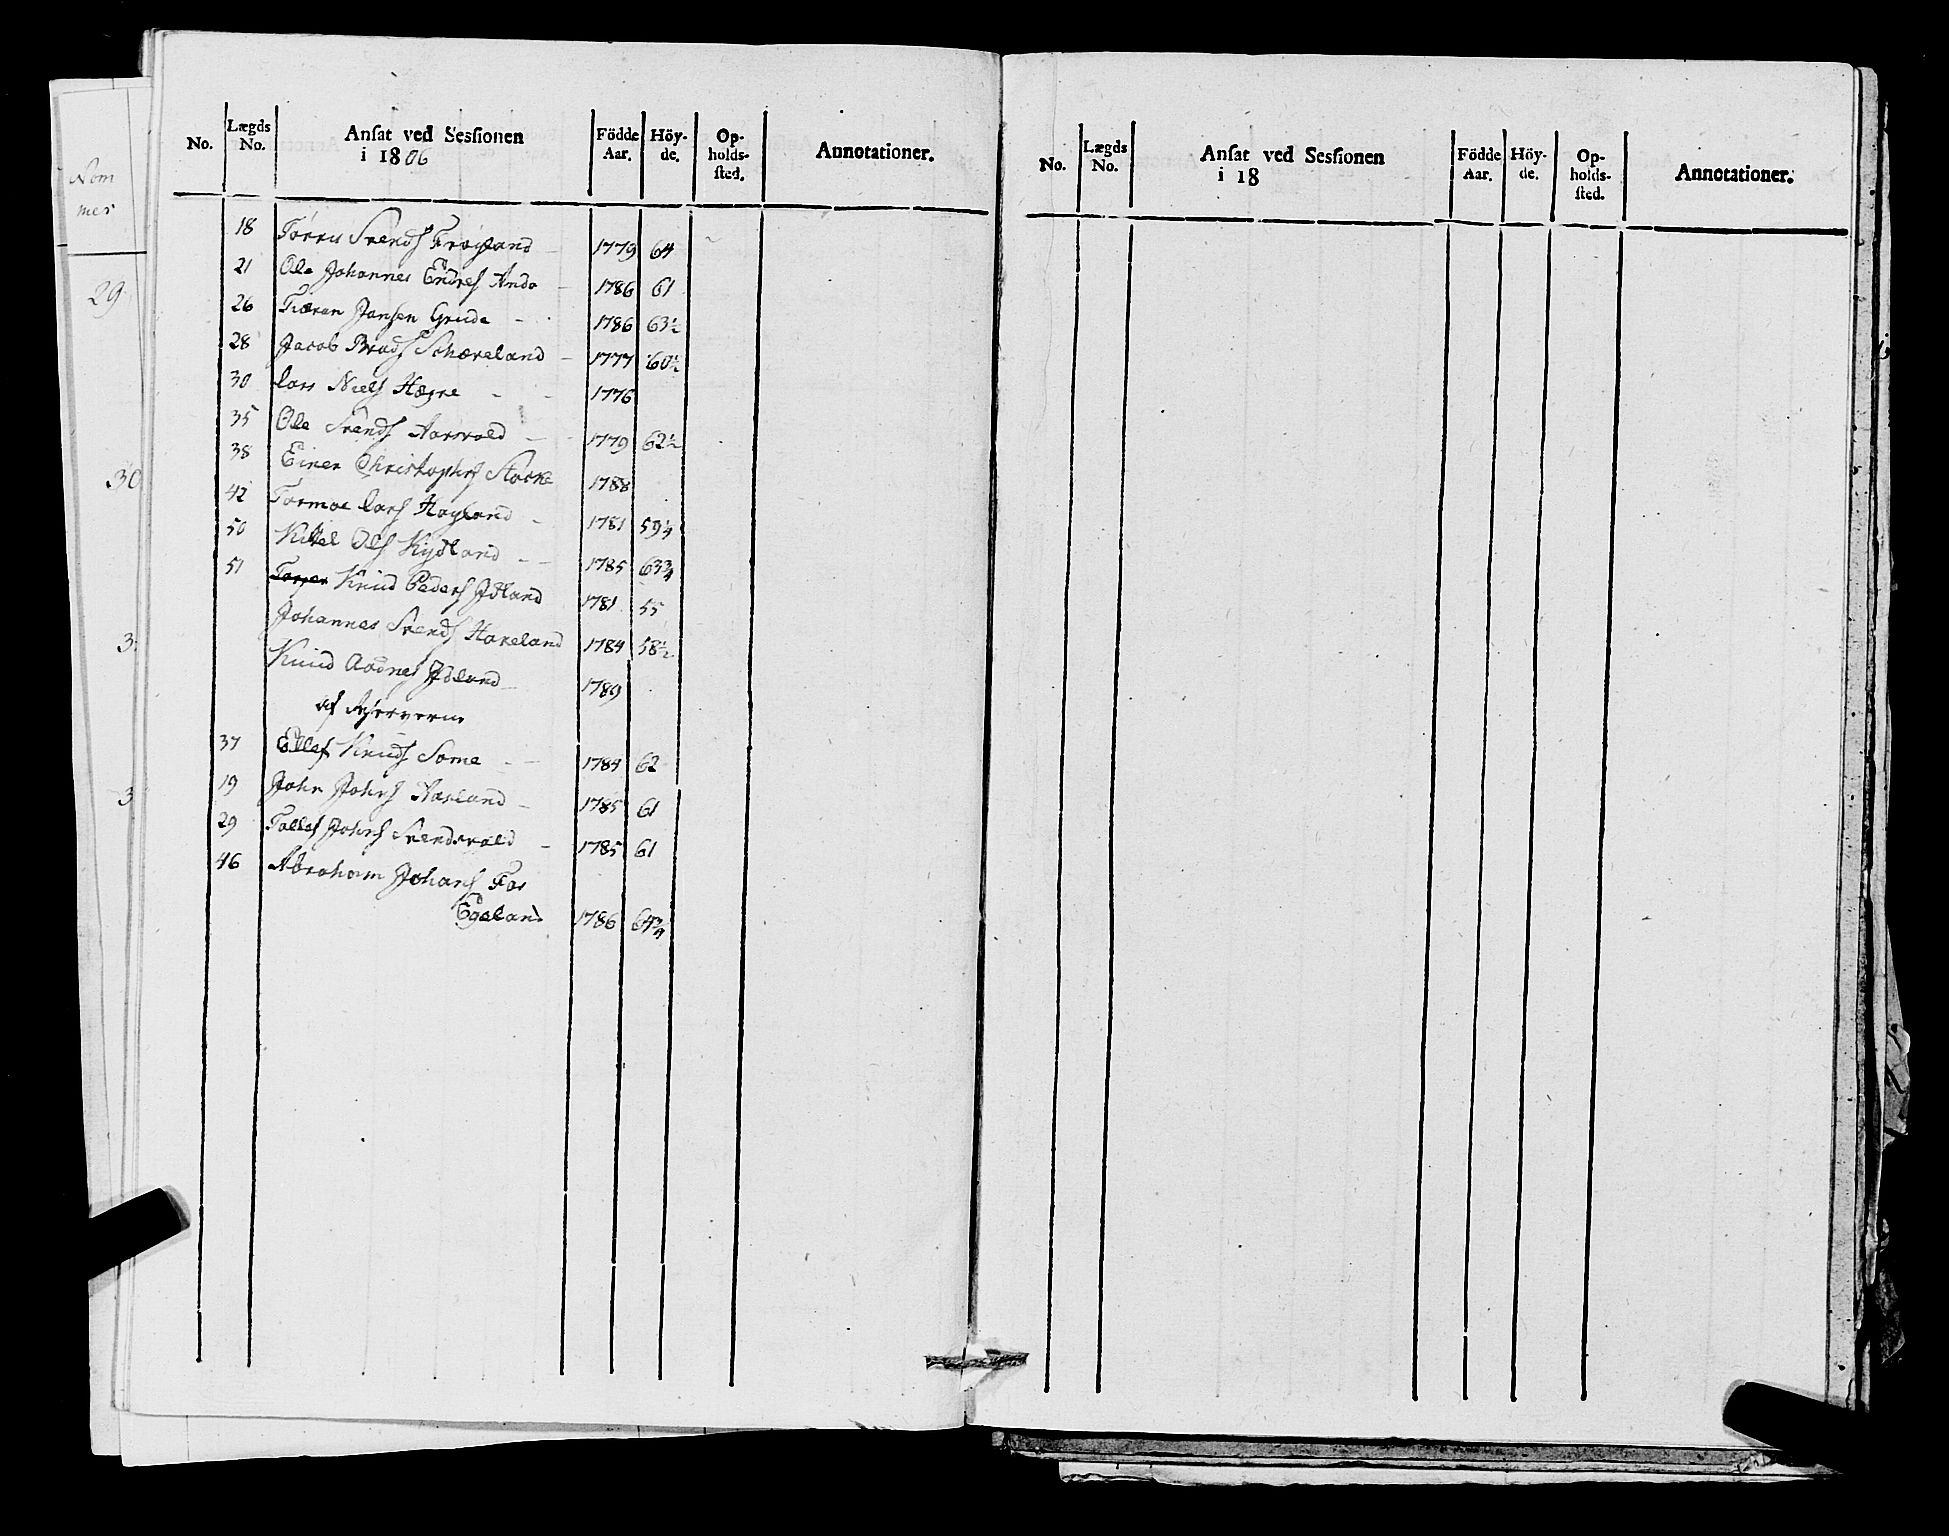 Nom
mer
29
30
3
3
No. Lægds No. Ansat ved Sessionen i 1806 Födde Aar. Höy-de. Op-holds-sted. Annotationer.
18 Tørris Svends Frøyland 1779 64
21 Ole Johannes Endres Anda 1786 61
26 Tiæran Jansen Grude 1786 63½
28 Jacob Brads Schæreland 1777 60½
30 Lars Niels Høgre 1776
35 Ole Svends Aarsvold 1779 62½
38 Einer Christophrs Stocke 1788
42 Tormoe Lars Høyland 1781 59¼
50 Kittel Ols Kydland 1785 63¾
51 Knud Peders Idland 1781 55
Johannes Svends Haveland 1784 58½
Knud Aadnes Idland 1789
af Reserverne
37 Ellef Knuds Some 1784 62
19 John Johns Aasland 1785 61
29 Tollef Johns Svendsvold 1785 61
46 Abraham Johans Fos
Egeland 1786 64¾
No. Lægds No. Ansat ved Sessionen i 18 Födde Aar. Höy-de. Op-holds-sted. Annotationer.